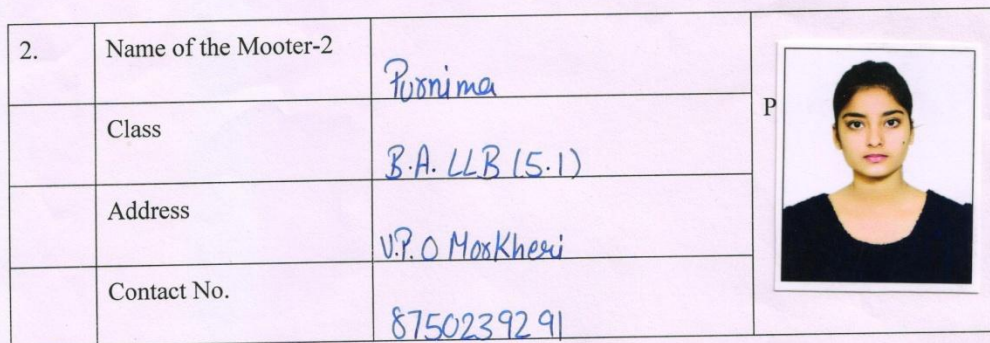 2. Name of the Mooter-2 Purnima P
Class B.A. LLB (5.1)
Address V.P.O Morkheri
Contact No. 8750239291